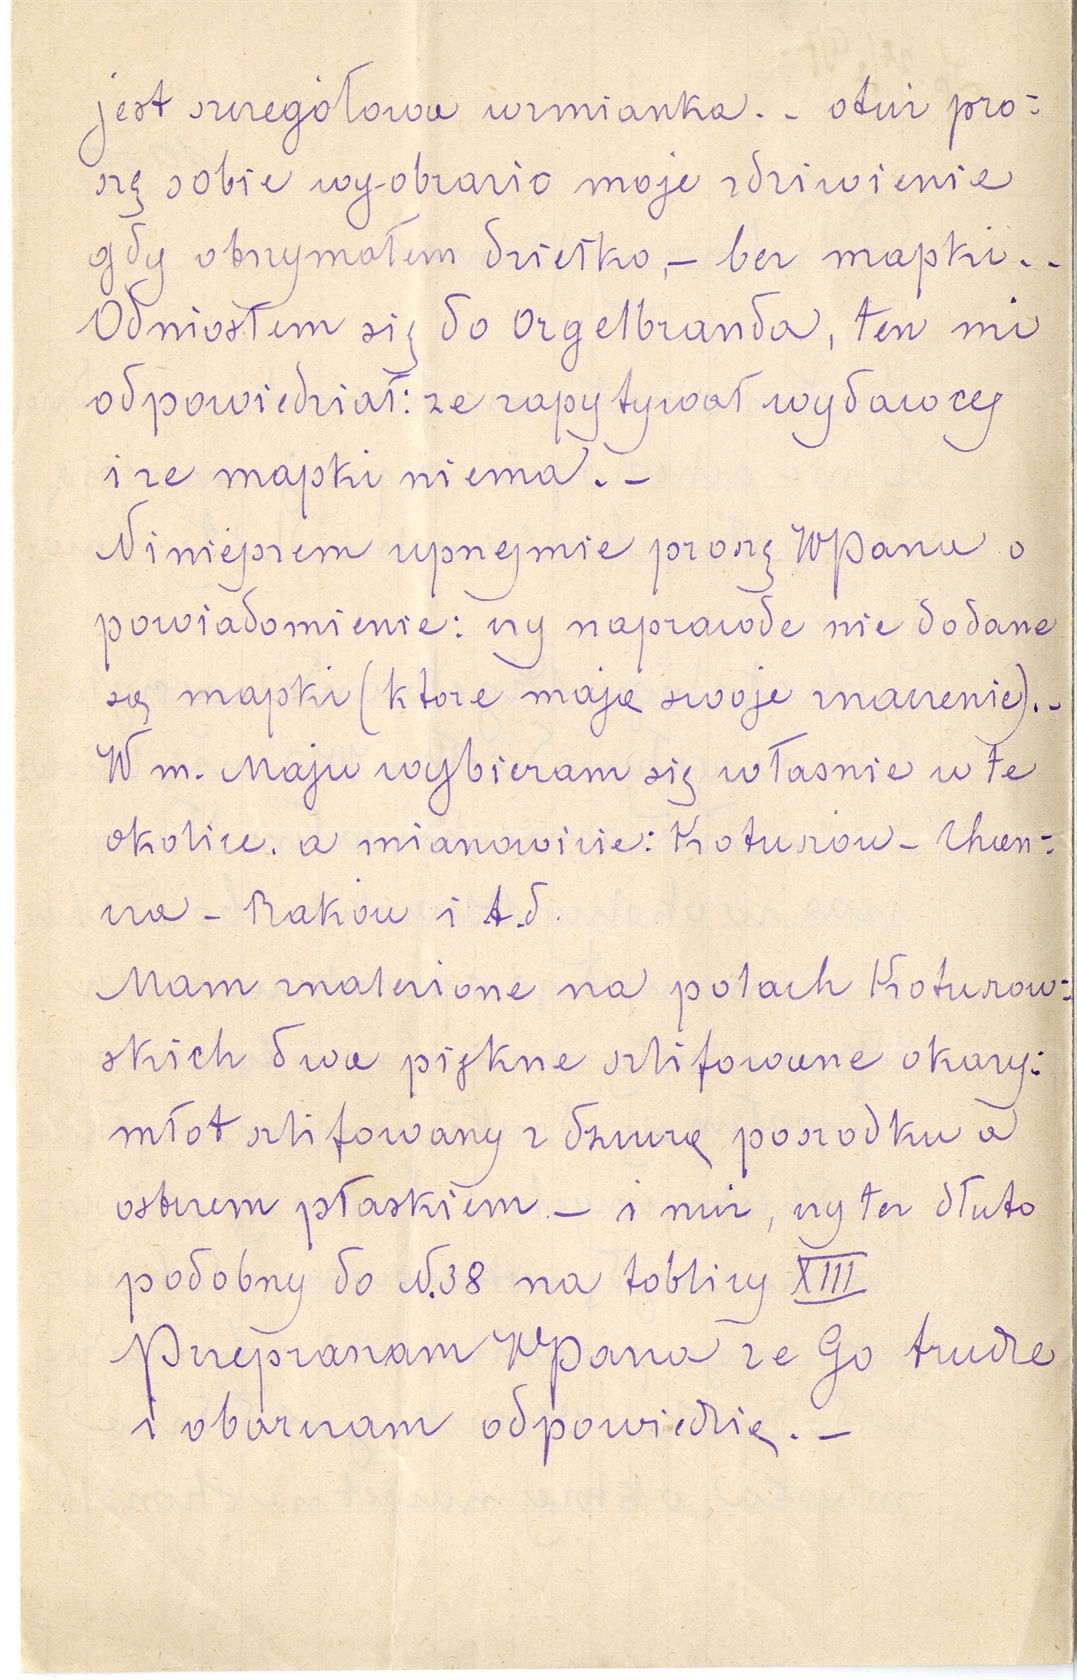 jest szczegółowa wzmianka. - otuż pro-
szę sobie wyobrazić moje zdziwienie
gdy otrzymałem dziełko, - bez mapki. -
Odniosłem się do Orgelbranda, ten mi
odpowiedział: ze zapytywał wydawcę
i ze mapki niema. -
Niniejszem uprzejmie proszę WPana o
powiadomienie: czy naprawde nie dodane
są mapki (ktore mają swoje znaczenie). -
W m. Maju wybieram się własnie w te
okolice. a mianowicie: Kotuszów - Chań-
cza - Raków i t.d.
Mam znalezione na polach Kotuszow-
skich dwa piękne szlifowane okazy:
młot szlifowany z dziurą posrodku a
ostrzem płaskiem - i nuż, czy też dłuto
podobny do N.38 na tablicy XIII
Przepraszam WPana ze Go trudze
i obarczam odpowiedzią. -